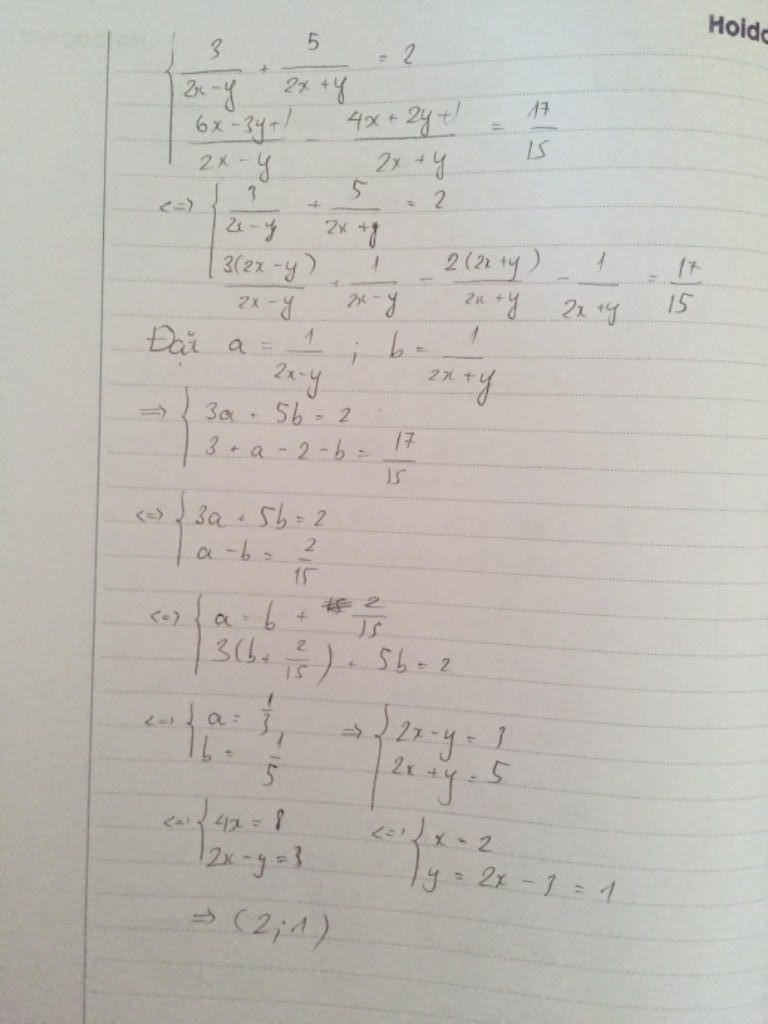 Hoidc
{ 3/(2x-y) + 5/(2x+y) = 2
(6x-3y+1)/(2x-y) - (4x+2y+1)/(2x+y) = 17/15
<=> { 3/(2x-y) + 5/(2x+y) = 2
3(2x-y)/(2x-y) + 1/(2x-y) - 2(2x+y)/(2x+y) - 1/(2x+y) = 17/15
Đặt a = 1/(2x-y) ; b = 1/(2x+y)
=> { 3a + 5b = 2
3 + a - 2 - b = 17/15
<=> { 3a + 5b = 2
a - b = 2/15
<=> { a = b + 2/15
3(b + 2/15) + 5b = 2
<=> { a = 1/3 => { 2x-y = 3
b = 1/5 2x+y = 5
<=> { 4x = 8 <=> { x = 2
2x-y = 3 y = 2x - 3 = 1
=> (2;1)